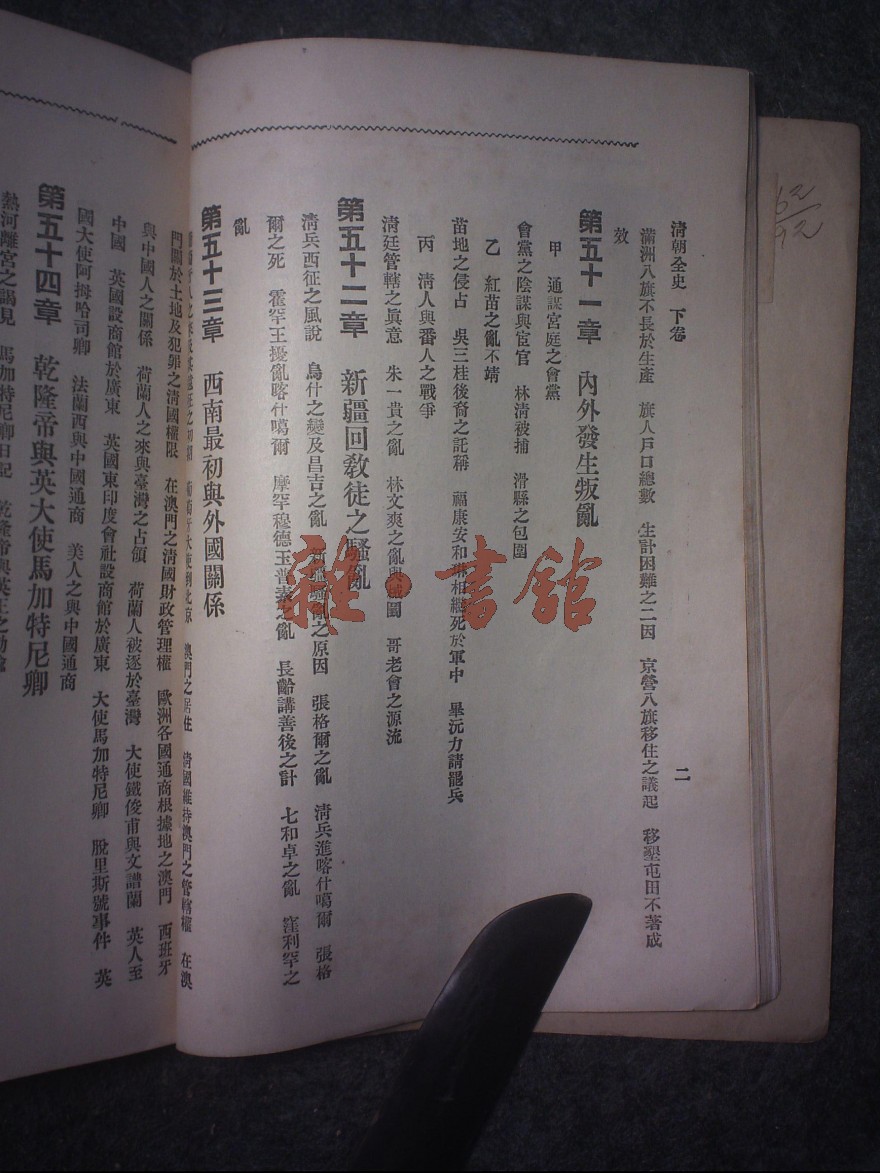 清朝全史　下卷　二
滿洲八旗不長於生產　旗人戶口總數　生計困難之二因　京營八旗移住之議起　移墾屯田不著成
效
第五十一章　內外發生叛亂
甲　通謀宮庭之會黨
會黨之陰謀與宦官　林清被捕　滑縣之包圍
乙　紅苗之亂不靖
苗地之侵占　吳三桂後裔之託稱　福康安和琳相繼死於軍中　畢沅力請罷兵
丙　清人與番人之戰爭
清廷管轄之眞意　朱一貴之亂　林文爽之亂與　哥老會之源流
第五十二章　新疆回敎徒之騷亂
清兵西征之風說　烏什之變及昌吉之亂　新疆騷亂之原因　張格爾之亂　清兵進喀什噶爾　張格
爾之死　霍罕王擾亂喀什噶爾　摩罕穆德玉普素之亂　長齡講善後之計　七和卓之亂　窪利罕之
亂
第五十三章　西南最初與外國關係
大使到北京　澳門之居住　清國維持澳門之管轄權　在澳
門關於土地及犯罪之清國權限　在澳門之清國財政管理權　歐洲各國通商根據地之澳門　西班牙
與中國人之關係　荷蘭人之來與臺灣之占領　荷蘭人被逐於臺灣　大使鐵俊甫與文譜蘭　英人至
中國　英國設商館於廣東　英國東印度會社設商館於廣東　大使馬加特尼卿　脫里斯號事件　英
國大使阿拇哈司卿　法蘭西與中國通商　美人之與中國通商
第五十四章　乾隆帝與英大使馬加特尼卿
熱河離宮之謁見　馬加特尼卿日記　乾隆帝與英王之勅諭
62
92
雜·書館